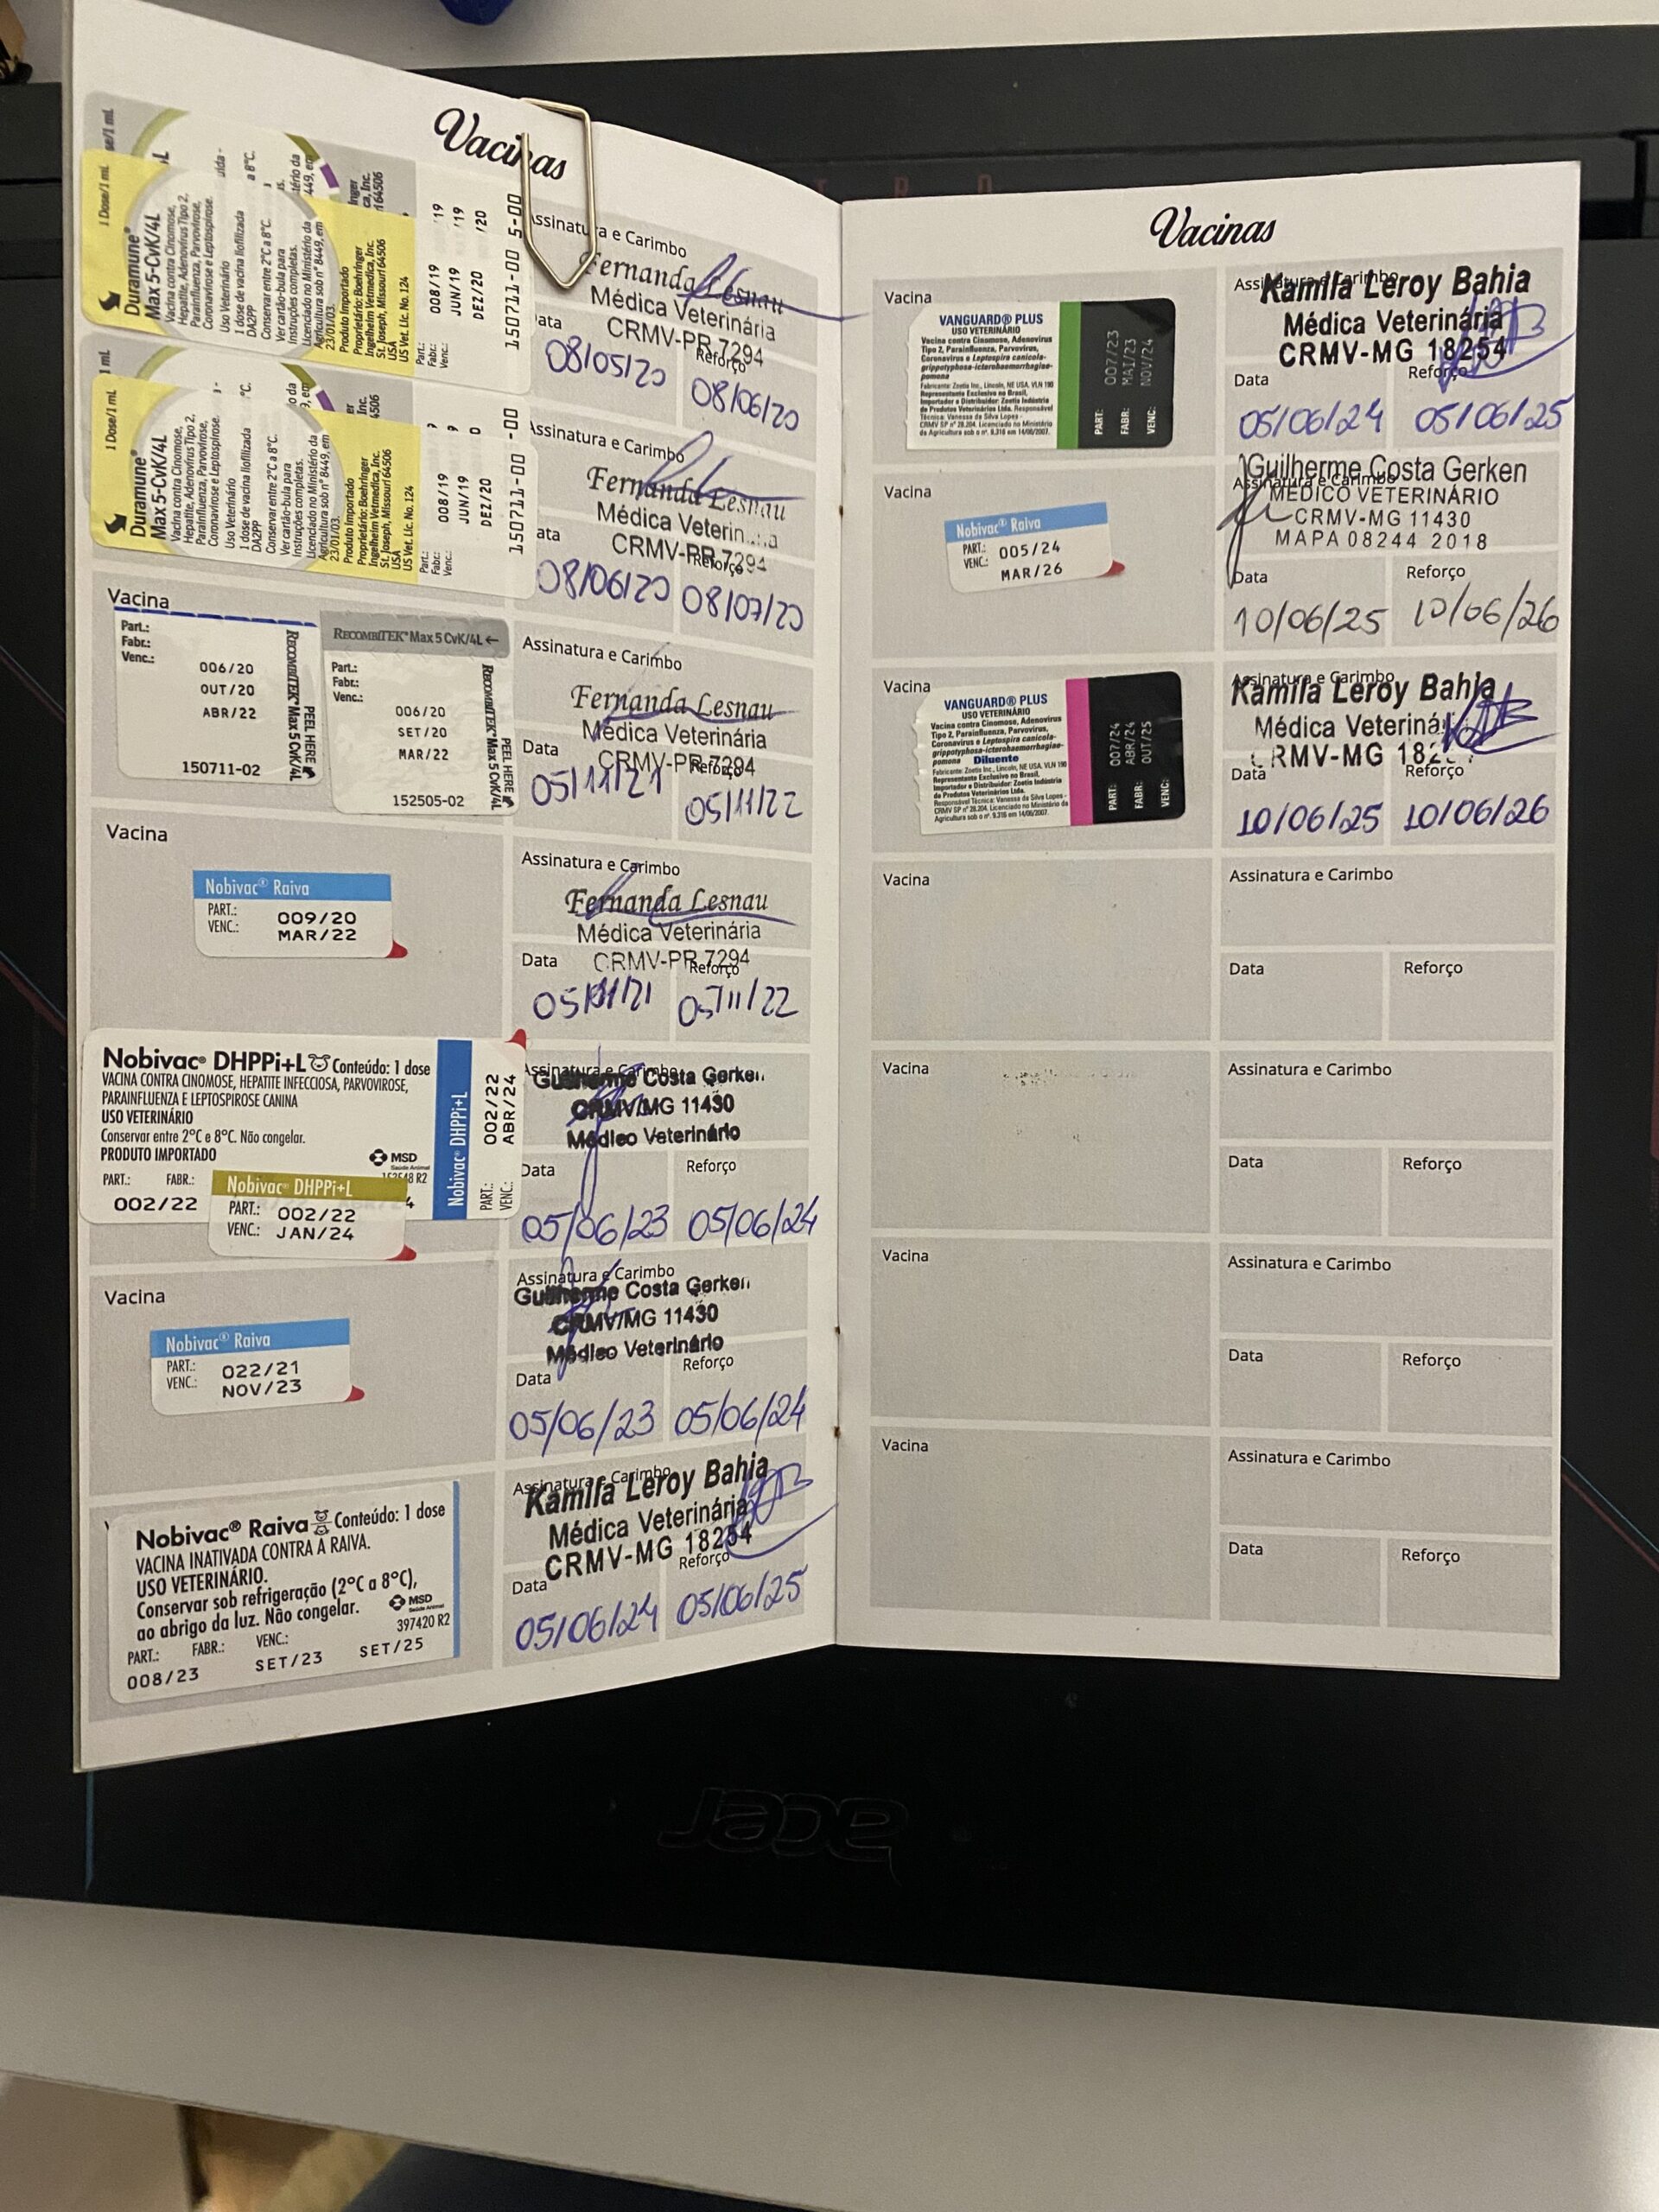 Vacinas
1 Dose/1 mL
Duramune®
Max 5-CvK/4L
Vacina contra Cinomose,
Hepatite, Adenovírus Tipo 2,
Parainfluenza, Parvovirose,
Coronavirose e Leptospirose.
Uso Veterinário
1 dose de vacina liofilizada
DA2PP
Conservar entre 2°C a 8°C.
Ver cartão-bula para
instruções completas.
Licenciado no Ministério da
Agricultura sob n° 8449, em
23/01/03.
Produto Importado
Proprietário: Boehringer
Ingelheim Vetmedica, Inc.
St. Joseph, Missouri 64506
USA
US Vet. Lic. No. 124
Part.: 008/19
Fabr.: JUN/19
Venc.: DEZ/20
150711-00
Assinatura e Carimbo
Fernanda Lesnau
Médica Veterinária
CRMV-PR 7294
Data
Reforço
08/05/20
08/06/20
1 Dose/1 mL
Duramune®
Max 5-CvK/4L
Vacina contra Cinomose,
Hepatite, Adenovírus Tipo 2,
Parainfluenza, Parvovirose,
Coronavirose e Leptospirose.
Uso Veterinário
1 dose de vacina liofilizada
DA2PP
Conservar entre 2°C a 8°C.
Ver cartão-bula para
instruções completas.
Licenciado no Ministério da
Agricultura sob n° 8449, em
23/01/03.
Produto Importado
Proprietário: Boehringer
Ingelheim Vetmedica, Inc.
St. Joseph, Missouri 64506
USA
US Vet. Lic. No. 124
Part.: 008/19
Fabr.: JUN/19
Venc.: DEZ/20
150711-00
Assinatura e Carimbo
Fernanda Lesnau
Médica
CRMV-PR 7294
Data
Reforço
08/06/20
08/07/20
Vacina
Part.:
Fabr.:
Venc.:
006/20
OUT/20
ABR/22
150711-02
RECOMBITEK® Max 5 CvK/4L
PEEL HERE
RECOMBITEK® Max 5 CvK/4L
Part.:
Fabr.:
Venc.:
006/20
SET/20
MAR/22
152505-02
RECOMBITEK® Max 5 CvK/4L
PEEL HERE
Assinatura e Carimbo
Fernanda Lesnau
Médica Veterinária
CRMV-PR 7294
Data
Reforço
05/11/21
05/11/22
Vacina
Nobivac® Raiva
PART.: 009/20
VENC.: MAR/22
Assinatura e Carimbo
Fernanda Lesnau
Médica Veterinária
CRMV-PR 7294
Data
Reforço
05/11/21
05/11/22
Nobivac® DHPPi+L Conteúdo: 1 dose
VACINA CONTRA CINOMOSE, HEPATITE INFECCIOSA, PARVOVIROSE,
PARAINFLUENZA E LEPTOSPIROSE CANINA
USO VETERINÁRIO
Conservar entre 2°C e 8°C. Não congelar.
PRODUTO IMPORTADO
MSD
Saúde Animal
PART.: FABR.:
002/22
Nobivac® DHPPi+L
PART.: 002/22
VENC.: ABR/24
Nobivac® DHPPi+L
PART.: 002/22
VENC.: JAN/24
Assinatura e Carimbo
Guilherme Costa Gerken
CRMV/MG 11430
Médico Veterinário
Data
Reforço
05/06/23
05/06/24
Vacina
Nobivac® Raiva
PART.: 022/21
VENC.: NOV/23
Assinatura e Carimbo
Guilherme Costa Gerken
CRMV/MG 11430
Médico Veterinário
Data
Reforço
05/06/23
05/06/24
Nobivac® Raiva Conteúdo: 1 dose
VACINA INATIVADA CONTRA A RAIVA.
USO VETERINÁRIO.
Conservar sob refrigeração (2°C a 8°C),
ao abrigo da luz. Não congelar.
MSD
Saúde Animal
397420 R2
PART.: FABR.: VENC.:
008/23 SET/23 SET/25
Assinatura e Carimbo
Kamila Leroy Bahia
Médica Veterinária
CRMV-MG 18254
Data
Reforço
05/06/24
05/06/25
Vacinas
Vacina
VANGUARD® PLUS
USO VETERINÁRIO
Vacina contra Cinomose, Adenovirus
Tipo 2, Parainfluenza, Parvovirus,
Coronavirus e Leptospira canicola-
grippotyphosa-icterohaemorrhagiae-
pomona
Fabricante: Zoetis Inc., Lincoln, NE USA. VLN 190
Representante Exclusivo no Brasil,
Importador e Distribuidor: Zoetis Indústria
de Produtos Veterinários Ltda. Responsável
Técnica: Vanessa da Silva Lopes -
CRMV SP n° 28.204. Licenciado no Ministério
da Agricultura sob o n°. 8.316 em 14/06/2007.
PART: 007/23
FABR: MAI/23
VENC: NOV/24
Assinatura e Carimbo
Kamila Leroy Bahia
Médica Veterinária
CRMV-MG 18254
Data
Reforço
05/06/24
05/06/25
Vacina
Nobivac® Raiva
PART.: 005/24
VENC.: MAR/26
Assinatura e Carimbo
Guilherme Costa Gerken
MÉDICO VETERINÁRIO
CRMV-MG 11430
MAPA 08244 2018
Data
Reforço
10/06/25
10/06/26
Vacina
VANGUARD® PLUS
USO VETERINÁRIO
Vacina contra Cinomose, Adenovirus
Tipo 2, Parainfluenza, Parvovirus,
Coronavirus e Leptospira canicola-
grippotyphosa-icterohaemorrhagiae-
pomona Diluente
Fabricante: Zoetis Inc., Lincoln, NE USA. VLN 190
Representante Exclusivo no Brasil,
Importador e Distribuidor: Zoetis Indústria
de Produtos Veterinários Ltda.
Responsável Técnica: Vanessa da Silva Lopes -
CRMV SP n° 28.204. Licenciado no Ministério da
Agricultura sob o n°. 8.316 em 14/06/2007.
PART: 007/24
FABR: ABR/24
VENC: OUT/25
Assinatura e Carimbo
Kamila Leroy Bahia
Médica
Data
Reforço
10/06/25
10/06/26
Vacina
Assinatura e Carimbo
Data
Reforço
Vacina
Assinatura e Carimbo
Data
Reforço
Vacina
Assinatura e Carimbo
Data
Reforço
Vacina
Assinatura e Carimbo
Data
Reforço
acer